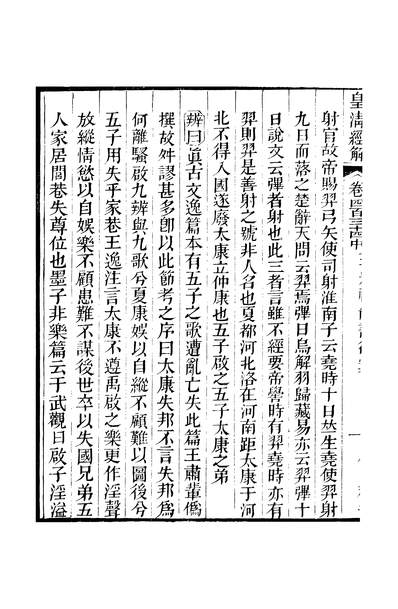 皇清經解
卷四百三十中
射官故帝賜羿弓矢使司射淮南子云堯時十日並生堯使羿射
九日而落之楚辭天問云羿焉彈日烏解羽歸藏易亦云羿彈十
日說文云彈者射也此三者言雖不經要帝嚳時有羿堯時亦有
羿則羿是善射之號非人名也夏都河北洛在河南距太康于河
北不得入國遂廢太康立仲康也五子啟之五子太康之弟
辨曰眞古文逸篇本有五子之歌遭亂亡失此篇王肅輩僞
撰故舛謬甚多卽以此節考之序曰太康失邦不言失邦爲
何離騷啟九辨與九歌兮夏康娛以自縱不顧難以圖後兮
五子用失乎家巷王逸注言太康不遵禹啟之樂更作淫聲
放縱情慾以自娛樂不顧患難不謀後世卒以失國兄弟五
人家居閭巷失尊位也墨子非樂篇云于武觀曰啟子淫溢